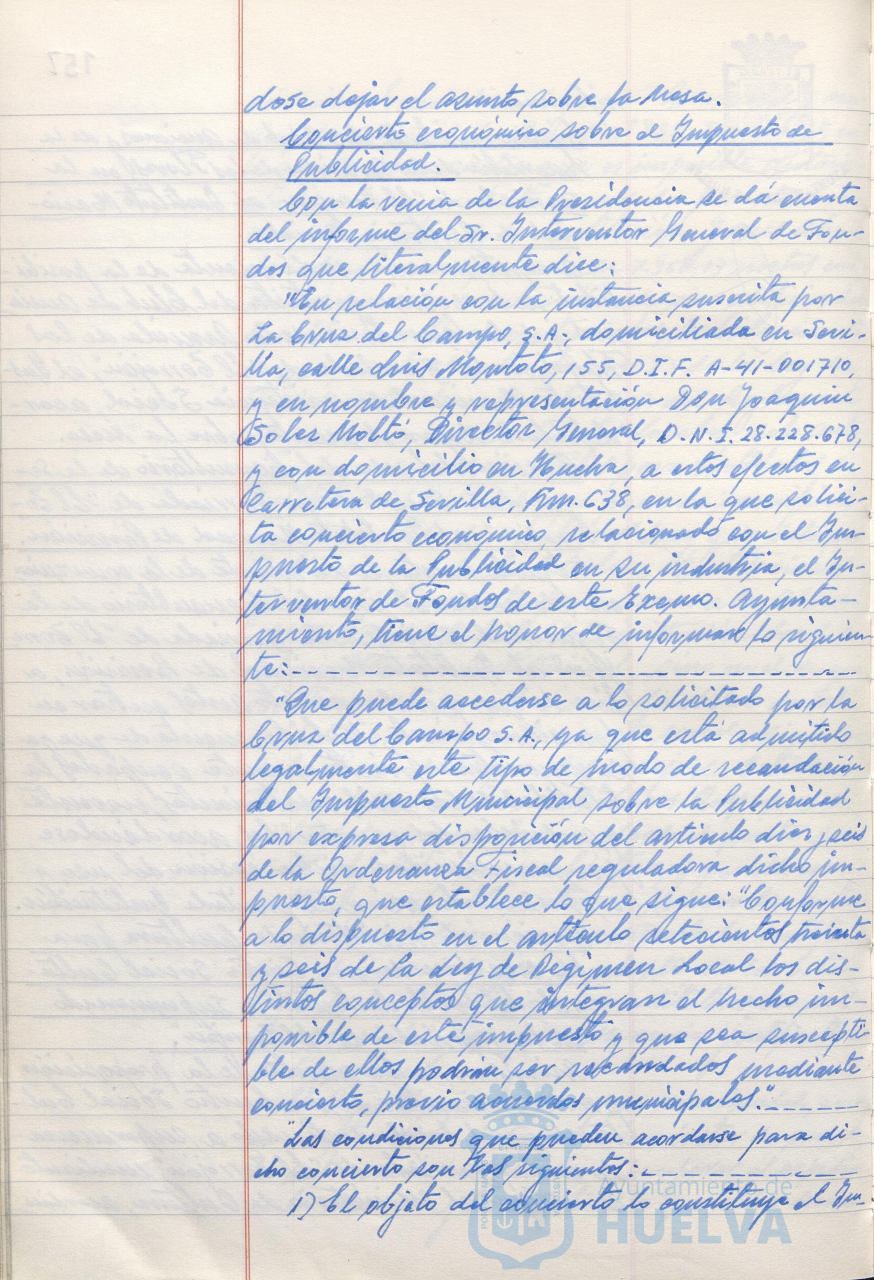 dose dejar el asunto sobre la Mesa.
Concierto económico sobre el Impuesto de
Publicidad.
Con la venia de la Presidencia se dá cuenta
del informe del Sr. Interventor General de Fon-
dos que literalmente dice:
"En relación con la instancia suscrita por
La Cruz del Campo, S.A., domiciliada en Sevi-
lla, calle Luis Montoto, 155, D.I.F. A-41-001710,
y en nombre y representación Don Joaquin
Soler Moltó, Director General, D.N.I. 28.228.678,
y con domicilio en Huelva, a estos efectos en
Carretera de Sevilla, Km. 638, en la que solici-
ta concierto económico relacionado con el Im-
puesto de la Publicidad en su industria, el In-
terventor de Fondos de este Excmo. Ayunta-
miento, tiene el honor de informar lo siguien-
te:
"Que puede accederse a lo solicitado por la
Cruz del Campo S.A., ya que está admitido
legalmente este tipo de modo de recaudación
del Impuesto Municipal sobre la Publicidad
por expresa disposición del artículo diez y seis
de la Ordenanza Fiscal reguladora dicho im-
puesto, que establece lo que sigue: "Conforme
a lo dispuesto en el artículo setecientos treinta
y seis de la Ley de Régimen Local los dis-
tintos conceptos que integran el hecho im-
ponible de este impuesto y que sea suscepti
ble de ellos podrán ser recaudados mediante
concierto, previo acuerdos municipales."
"Las condiciones que pueden acordarse para di-
cho concierto son las siguientes:
1) El objeto del concierto lo constituye el Im-
Ayuntamiento de
HUELVA